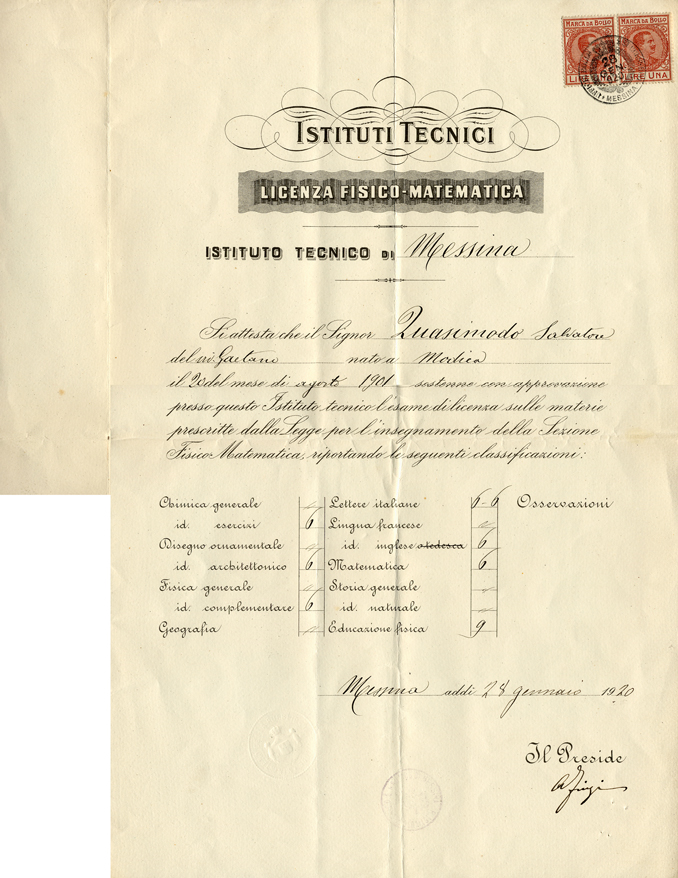 MARCA DA BOLLO MARCA DA BOLLO
LIRE UNA
MESSINA
ISTITUTI TECNICI
LICENZA FISICO-MATEMATICA
ISTITUTO TECNICO DI Messina
Si attesta che il Signor Quasimodo Salvatore
del Gaetano nato a Modica
il 20 del mese di agosto 1901 sostenne con approvazione
presso questo Istituto tecnico l'esame di licenza sulle materie
prescritte dalla Legge per l'insegnamento della Sezione
Fisico Matematica, riportando le seguenti classificazioni:
Chimica generale
id. esercizi 6
Disegno ornamentale
id. architettonico 6
Fisica generale
id. complementare 6
Geografia
Lettere italiane 6-6
Lingua francese
id. inglese o tedesca 6
Matematica 6
Storia generale
id. naturale
Educazione fisica 9
Osservazioni
Messina addì 28 gennaio 1920
Il Preside